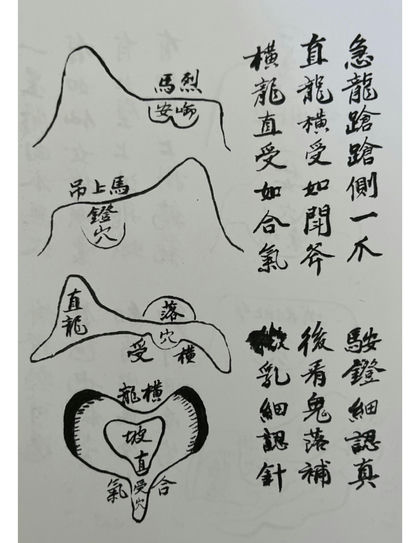 急龍蹌蹌側一爪 䮗鐙細認真
直龍橫受如閗斧 後看鬼落補
橫龍直受如合氣 微乳細認針
烈馬
啣安
馬上吊
鐙穴
直龍
落穴
橫受
橫龍
坡
直受穴
合氣